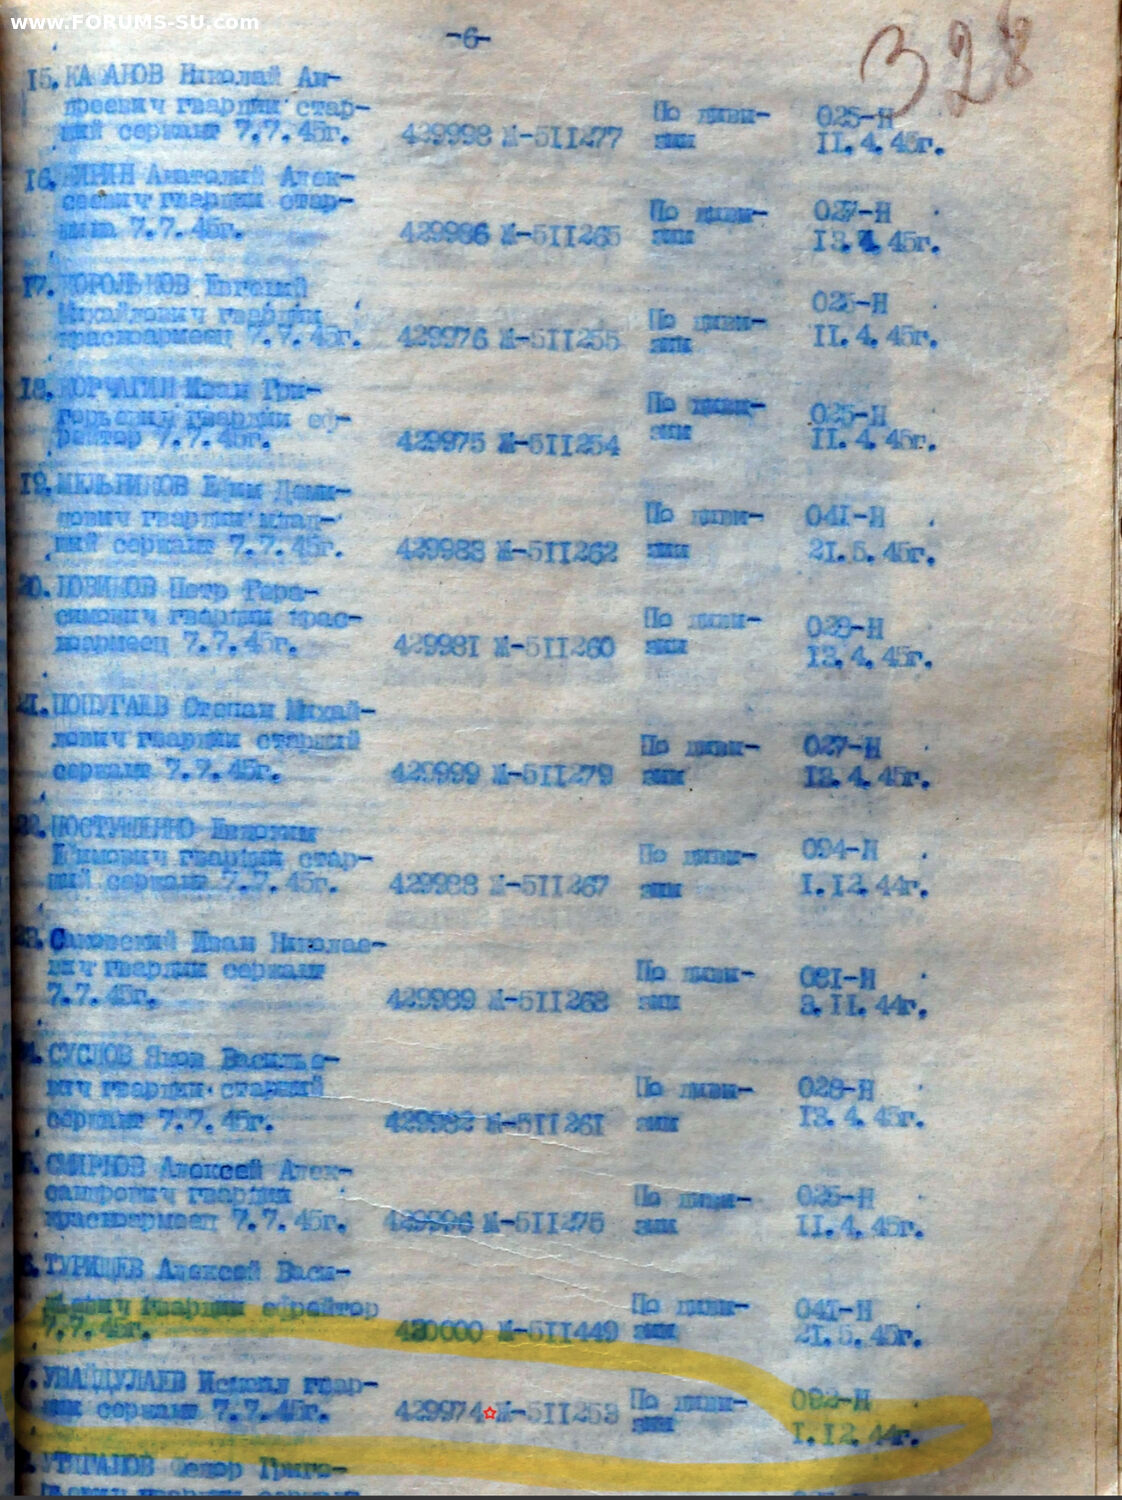 www.FORUMS-SU.com
-6-
328
15. КАБАНОВ Николай Ан-
дреевич гвардии стар-
ший сержант 7.7.45г. 429998 М-511277 По диви- зии 025-Н 11.4.45г.
16. Анатолий Алек-
сеевич гвардии стар-
шина 7.7.45г. 429986 М-511265 По диви- зии 027-Н 13.4.45г.
17. КОРОЛЬКОВ Евгений
Михайлович гвардии
красноармеец 7.7.45г. 429976 М-511255 По диви- зии 025-Н 11.4.45г.
18. КОРЧАГИН Иван Гри-
горьевич гвардии еф-
рейтор 7.7.45г. 429975 М-511254 По диви- зии 025-Н 11.4.45г.
19. МЕЛЬНИКОВ Ефим Деми-
дович гвардии млад-
ший сержант 7.7.45г. 429983 М-511262 По диви- зии 041-Н 21.5.45г.
20. НОВИКОВ Петр Гера-
симович гвардии крас-
ноармеец 7.7.45г. 429981 М-511260 По диви- зии 028-Н 13.4.45г.
21. ПОПУГАЕВ Степан Михай-
лович гвардии старший
сержант 7.7.45г. 429999 М-511279 По диви- зии 027-Н 12.4.45г.
22. Евдоким
Ефимович гвардии стар-
ший сержант 7.7.45г. 429988 М-511267 По диви- зии 094-Н 1.12.44г.
23. Саковский Иван Николае-
вич гвардии сержант
7.7.45г. 429989 М-511268 По диви- зии 081-Н 3.11.44г.
4. СУСЛОВ Яков Василье-
вич гвардии старший
сержант 7.7.45г. 429982 М-511261 По диви- зии 028-Н 13.4.45г.
5. СМИРНОВ Алексей Алек-
сандрович гвардии
красноармеец 7.7.45г. 429996 М-511275 По диви- зии 025-Н 11.4.45г.
6. ТУРИЩЕВ Алексей Васи-
льевич гвардии ефрейтор
7.7.45г. 430000 М-511449 По диви- зии 041-Н 21.5.45г.
7. УВАЙДУЛАЕВ Исмаил гвар-
дии сержант 7.7.45г. 429974 М-511253 По диви- зии 092-Н 1.12.44г.
Федор Григо-